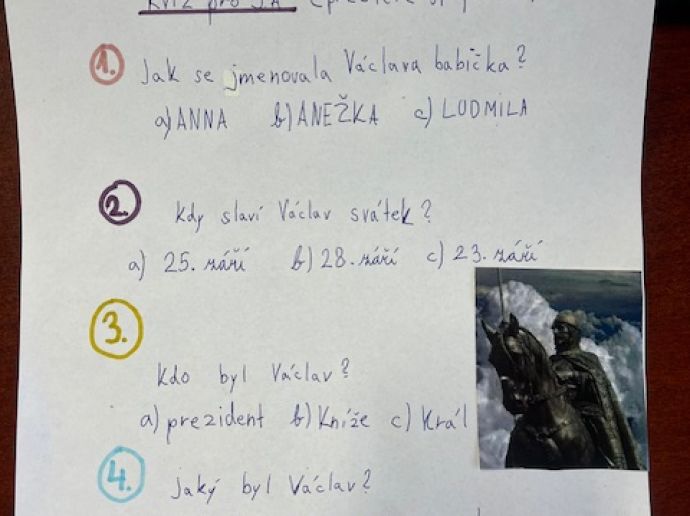 1. Jak se jmenovala Václava babička?
a) ANNA b) ANEŽKA c) LUDMILA
2. Kdy slaví Václav svátek?
a) 25. září b) 28. září c) 23. září
3.
Kdo byl Václav?
a) prezident b) Kníže c) Král
4. Jaký byl Václav?